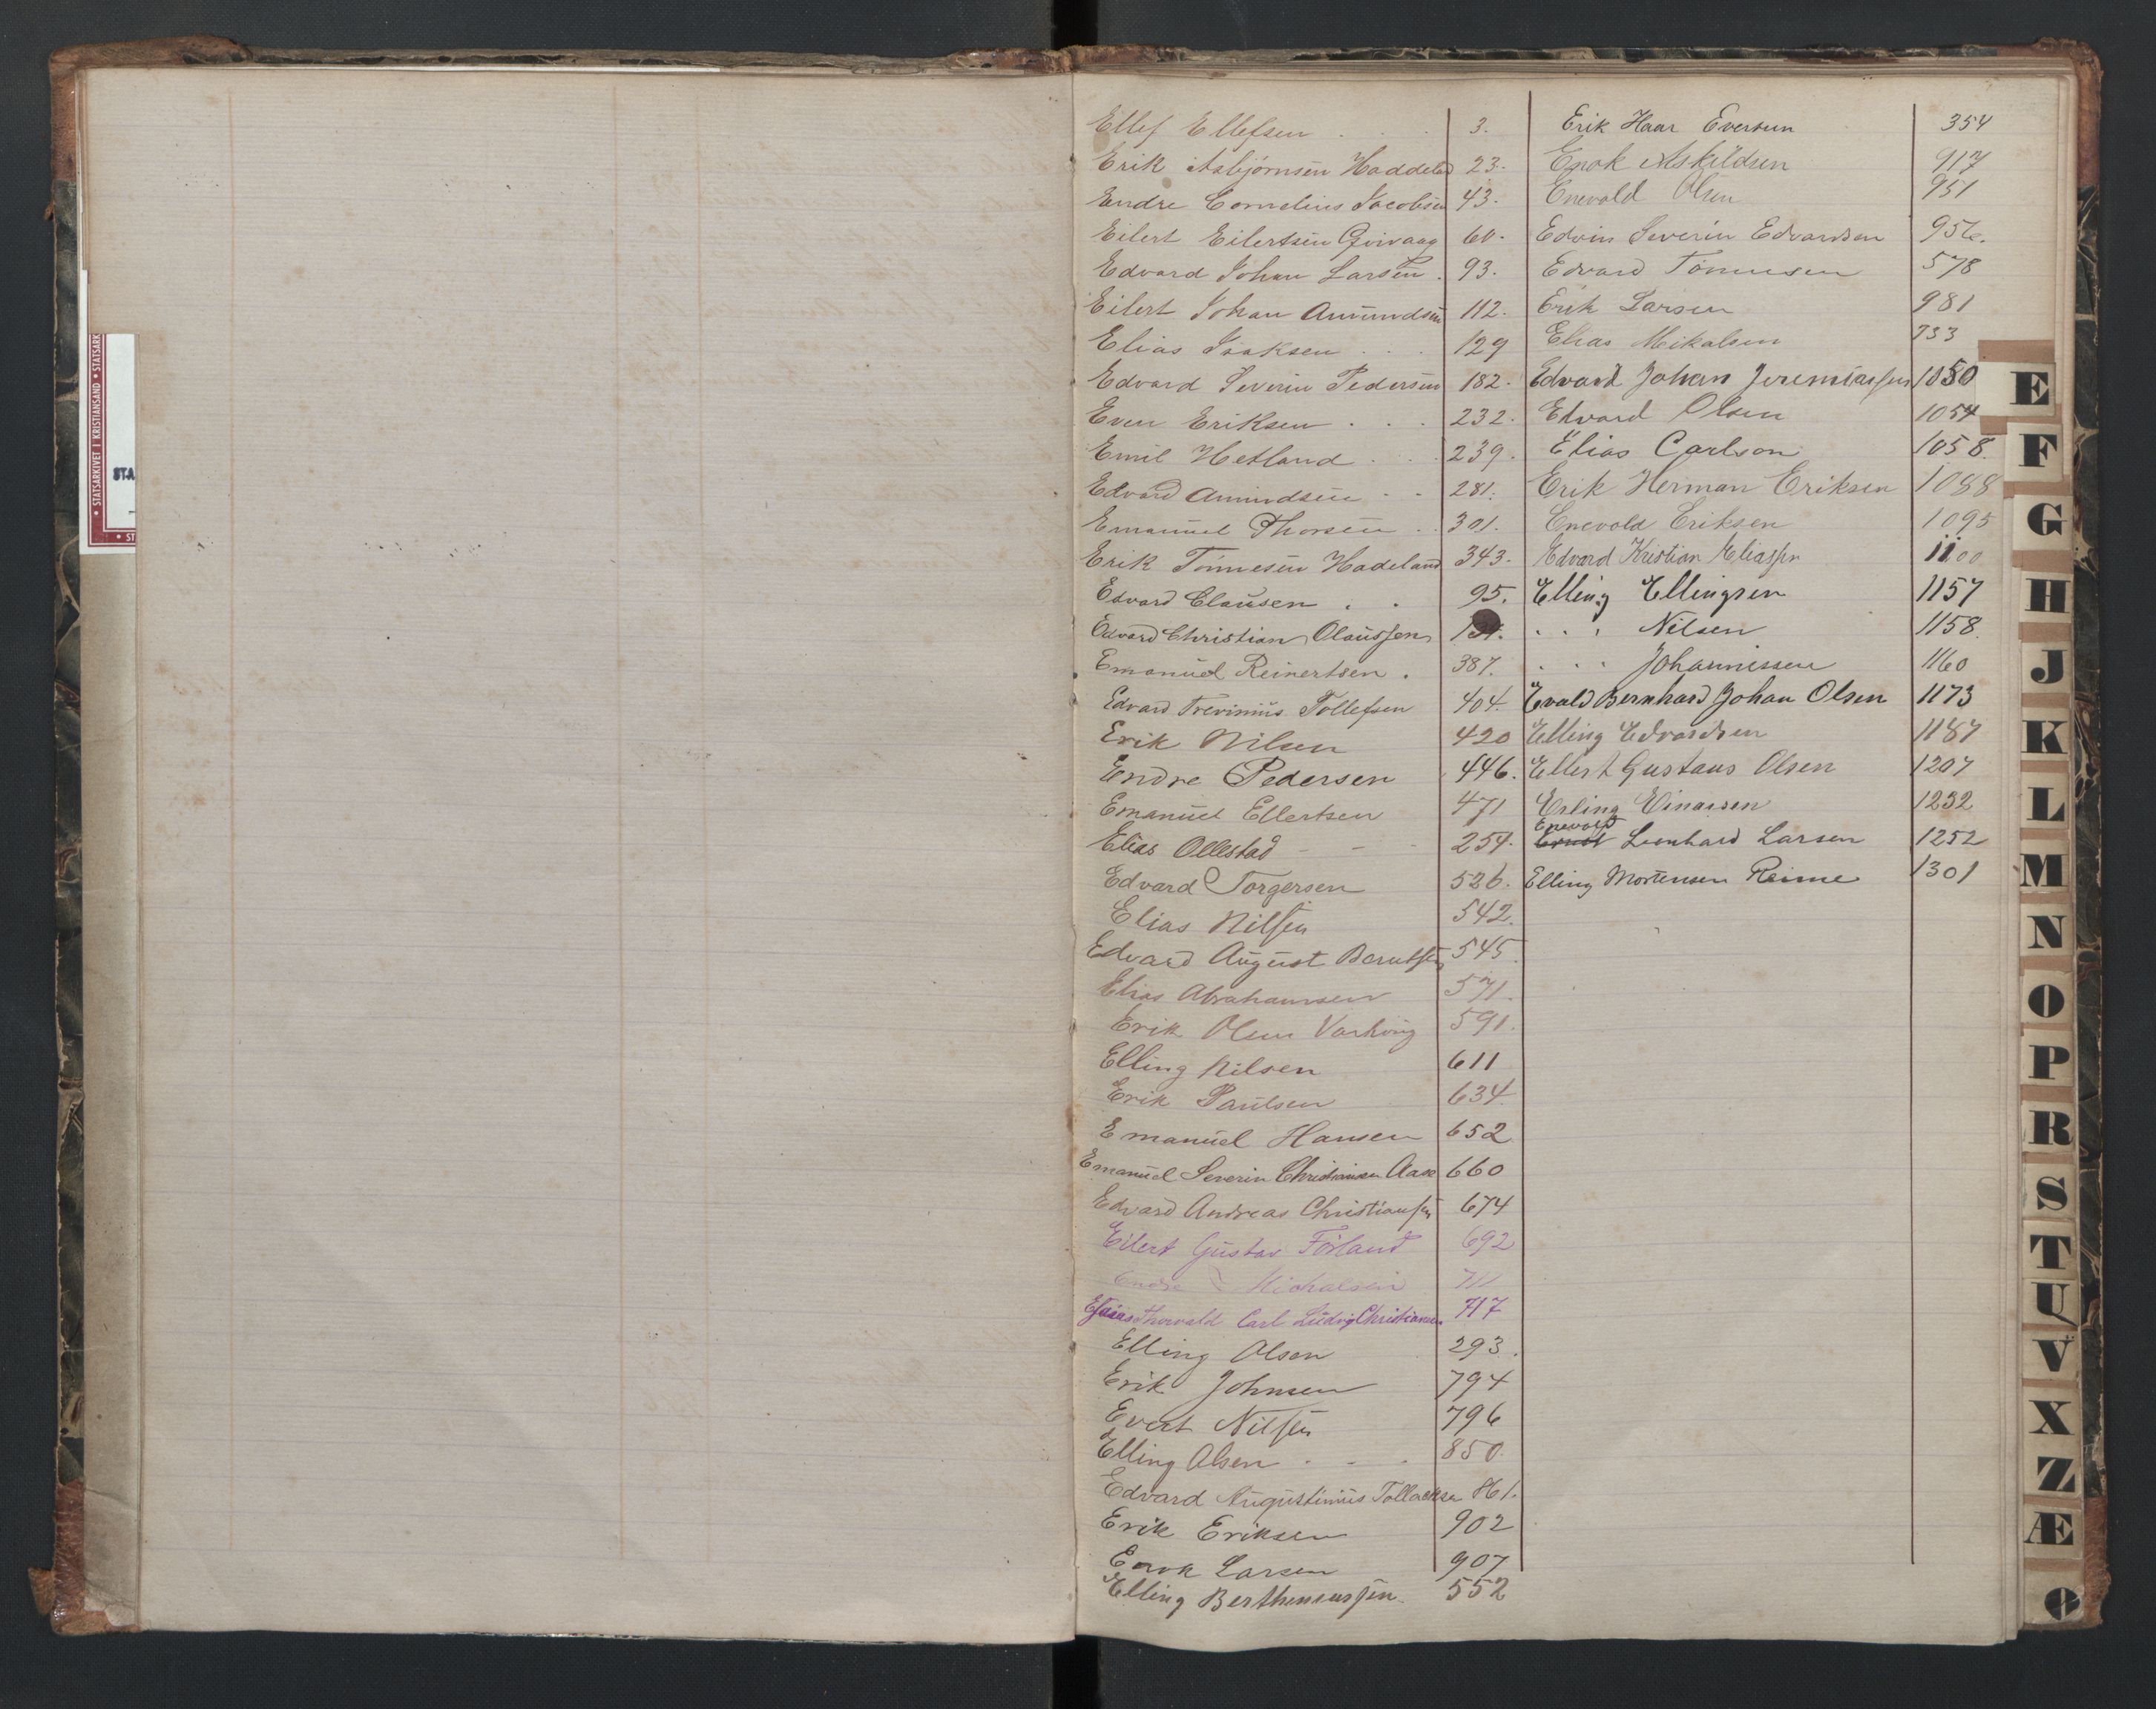 Ellef Ellefsen . . . 3.
Erik Asbjørnsen Haddeland 23.
Endre Cornelius Jacobsen 43.
Eilert Eilertsen Qvivaag 60.
Edvard Johan Larsen . 93.
Eilert Johan Amundsen 112.
Elias Isaksen . . . 129
Edvard Severin Pedersen 182.
Even Eriksen . . . 232.
Emil Hetland . . . 239.
Edvard Amundsen . . 281.
Emanuel Thorsen . . 301.
Erik Tønnesen Hadeland 343.
Edvard Clausen . . 95.
Edvard Christian Olaussen
Emanuel Reinertsen . 387.
Edvard Trevinius Tollefsen 404.
Erik Nilsen 420
Endre Pedersen 446.
Emanuel Ellertsen 471
Elias Ollestad - - - 254.
Edvard Torgersen 526.
Elias Nilssen 542.
Edvard August Berntssen 545.
Elias Abrahamsen 571.
Erik Olsen Varhoug 591.
Elling Nilsen 611
Erik Paulsen 634.
Emanuel Hansen 652
Emanuel Severin Christiansen Aase 660
Edvard Andreas Christianssen 674
Eilert Gustav Førland 692
Endre Michalsen 711
Esaias Thorvald Carl Ludvig Christiansen 717
Elling Olsen 293.
Erik Johnsen 794
Evert Nilssen 796
Elling Olsen . - . 850.
Edvard Augustinius Tollaksen
Erik Eriksen 902
Enok Larsen 907
Elling Berthinussen 552
Erik Haar Evertsen 354
Enok Askildsen 917
Enevold Olsen 951
Edvin Severin Edvardsen 956.
Edvard Tønnesen 578
Erik Larsen 981
Elias Mikalsen 733
Edvard Johan Jeremiassen 1050
Edvard Olsen 1054
Elias Carlson 1058.
Erik Herman Eriksen 1088
Enevold Eriksen 1095
Edvard Kristian Eliassen 1100
Elling Ellingsen 1157
. . . Nilsen 1158.
. . . Johannissen 1160
Evald Bernhard Johan Olsen 1173
Elling Edvardsen 1187
Ellert Gustavs Olsen 1207
Erling Einarsen 1232
Enevold
Ernst Leonhard Larsen 1252
Elling Mortensen Reime 1301
E
F
G
H
J
K
L
M
N
O
P
R
S
T
U
V
X
Z
Æ
Ø
• STATSARKIVET I KRISTIANSAND • STATSARK
STA
• ST